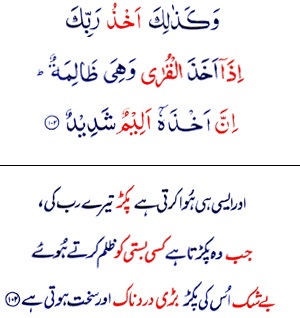 وَكَذٰلِكَ اَخْذُ رَبِّكَ
اِذَآ اَخَذَ الْقُرٰى وَهِىَ ظَالِمَةٌ ؕ
اِنَّ اَخْذَهٗۤ اَلِيْمٌ شَدِيْدٌ ﴿۱۰۲﴾
اور ایسی ہی ہُوا کرتی ہے پکڑ تیرے رب کی،
جب وہ پکڑتا ہے کسی بستی کو ظلم کرتے ہُوئے
بے شک اُس کی پکڑ بڑی دردناک اور سخت ہوتی ہے ﴿۱۰۲﴾